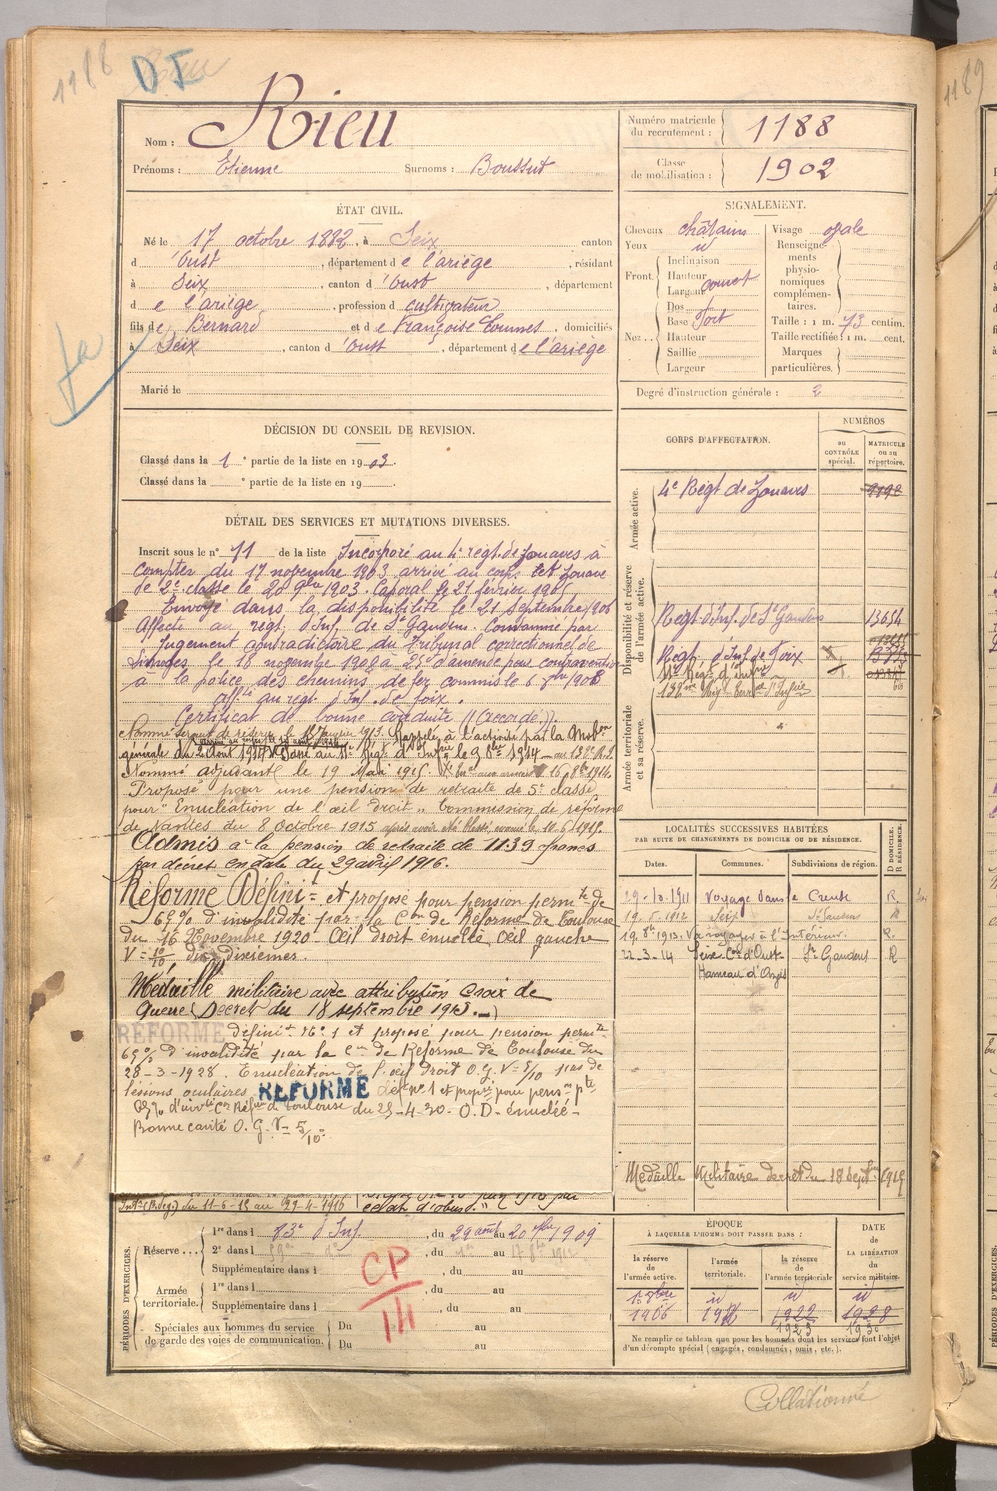 1188
DI
Nom : Rieu
Prénoms : Etienne Surnoms : Boussut
Numéro matricule du recrutement : 1188
Classe de mobilisation : 1902
ÉTAT CIVIL.
Né le 17 octobre 1882, à Seix canton
d'Oust, département de l'ariège, résidant
à Seix, canton d'Oust, département
de l'ariège, profession de cultivateur
fils de Bernard et de Françoise, domiciliés
à Seix, canton d'Oust, département de l'ariège
Marié le
SIGNALEMENT.
Cheveux châtains
Yeux id
Front. Inclinaison
Hauteur
Largeur
Nez. Dos
Base fort
Hauteur
Saillie
Largeur
Visage ovale
Renseignements physionomiques complémentaires.
Taille : 1 m. 73 centim.
Taille rectifiée : 1 m. cent.
Marques particulières.
Degré d'instruction générale : 2
DÉCISION DU CONSEIL DE REVISION.
Classé dans la 1e partie de la liste en 1903.
Classé dans la e partie de la liste en 19 .
CORPS D'AFFECTATION.
NUMÉROS
au CONTRÔLE spécial.
MATRICULE ou au répertoire.
Armée active.
4e Régt de Zouaves
Disponibilité et réserve de l'armée active.
Régt d'Inf. de St Gaudens 13654
Régt d'Inf. de Foix
Armée territoriale et sa réserve.
DÉTAIL DES SERVICES ET MUTATIONS DIVERSES.
Inscrit sous le n° 71 de la liste Incorporé au 4e régt de Zouaves à
compter du 17 novembre 1903 arrivé au corps Zouave
de 2e classe le 20 9bre 1903. Caporal le 21 février 1905
Envoyé dans la disponibilité le 21 septembre 1906
Affecté au régt d'Inf. de St Gaudens. Condamné par
Jugement contradictoire du Tribunal correctionnel de
Limoges le 18 à 25f d'amende pour contravention
à la police des chemins de fer commis le 6 7bre 1908
aff. au régt d'Inf. de Foix.
Certificat de bonne conduite "(accordé)".
Nommé sergent de réserve le Janvier 1913. Rappelé à l'activité par la Mobon
générale du 2 Août 1914. Passé au Régt d'Inf. le 9 1914
Nommé adjudant le 19 Mai 1915.
Proposé pour une pension de retraite de 5e classe
pour "Enucléation de l'œil droit". Commission de réforme
de Nantes du 8 Octobre 1915
Admis à la pension de retraite de 1139 francs
par décret en date du 29 avril 1916.
Réformé Définit et proposé pour pension permte de
65% d'invalidité par la Con de Réforme de Toulouse
du 16 Novembre 1920 Œil droit énuclé, Œil gauche
V = 10/10 dix dixièmes.
Médaille militaire avec attribution Croix de
Guerre (Décret du 18 septembre
REFORME Définit N° 1 et proposé pour pension permte
65% d'invalidité par la Con de Réforme de Toulouse du
28-3-1928. Enucléation de l'œil Droit O.G. V= 5/10 pas de
lésions oculaires REFORME Défe n° 1 et proposé pour pension pte
65% d'invté Con Réfme de Toulouse du 29-4-30- O.D- énuclée-
Bonne cavité O.G. V= 5/10
Intr (R.Seg.) du 11-6-15 au 29-4-1916
éclat d'obus."
LOCALITÉS SUCCESSIVES HABITÉES
PAR SUITE DE CHANGEMENTS DE DOMICILE OU DE RÉSIDENCE.
Dates. Communes. Subdivisions de région. D DOMICILE. R RÉSIDENCE.
29-10-1911 Voyage dans le Creuse R.
19-5-1912 Seix St Gaudens
19. 8bre 1913. Va voyager à l'Intérieur. R.
22-3-14 Seix Con d'Oust St Gaudens R
Hameau
Médaille Militaire decret du 18 Septbre
PÉRIODES D'EXERCICES.
Réserve
1re dans l 83e d'Inf., du 29 août au 20 1909
2e dans l , du au
Supplémentaire dans l , du au
Armée territoriale.
1re dans l , du au
Supplémentaire dans l , du au
Spéciales aux hommes du service de garde des voies de communication.
Du au
Du au
CP
ÉPOQUE
À LAQUELLE L'HOMME DOIT PASSER DANS :
la réserve de l'armée active. l'armée territoriale. la réserve de l'armée territoriale
DATE DE LA LIBÉRATION du service militaire.
1906 1922 1928
1923 1930
Ne remplir ce tableau que pour les hommes dont les services font l'objet
d'un décompte spécial (engagés, condamnés, omis, etc.).
Collationné
1189